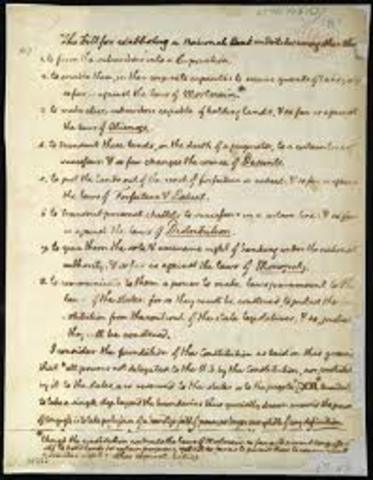 The Bill for establishing a National Bank undertakes among other things
1. to form the subscribers into a Corporation.
2. to enable them, in their corporate capacities to receive grants of land; and
so far is against the laws of Mortmain.*
3. to make alien subscribers capable of holding lands, & so far is against
the laws of Alienage.
4. to transmit these lands, on the death of a proprietor, to a certain line of
successors: & so far changes the course of Descents.
5. to put the lands out of the reach of forfeiture or escheat: & so far is against
the laws of Forfeiture & Escheat.
6. to transmit personal chattels to successors in a certain line: & so far
is against the laws of Distribution.
7. to give them the sole & exclusive right of banking under the national
authority: & so far is against the laws of Monopoly.
8. to communicate to them a power to make laws paramount to the
laws of the states: for so they must be construed, to protect the
institution from the control of the state legislatures; & so, probably
they will be construed.
I consider the foundation of the Constitution as laid on this ground
that 'all powers not delegated to the U.S. by the Constitution, nor prohibited
by it to the states, are reserved to the states or to the people' [XIIth. amendmt.]
to take a single step beyond the boundaries thus specially drawn around the powers
of Congress is to take possession of a boundless field of power, no longer susceptible of any definition.